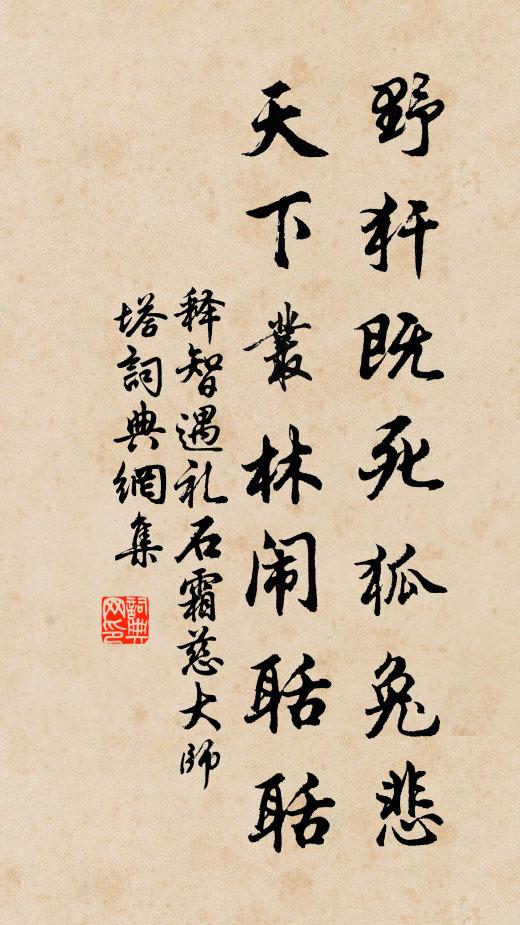 野犴既死狐兔悲
天下叢林闹聒聒
释智遇礼石霜慈大師
塔詞典網集
詞典
网印